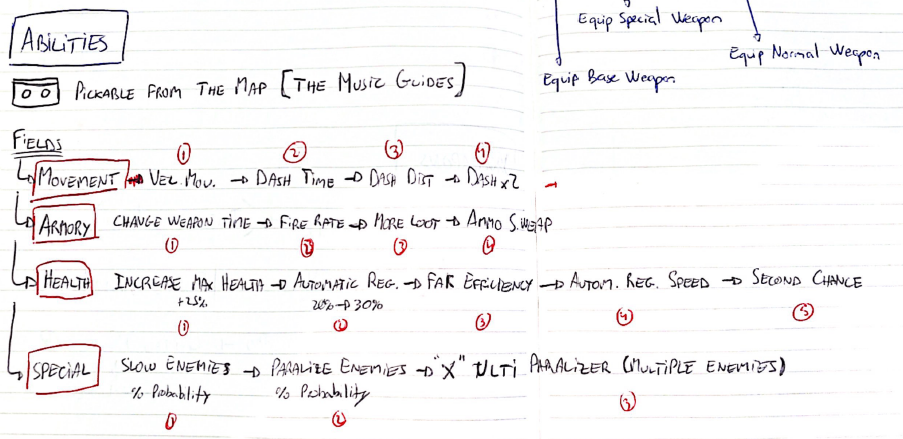 Equip Special Weapon
Equip Normal Weapon
Equip Base Weapon
ABILITIES
PICKABLE FROM THE MAP [THE MUSIC GUIDES]
FIELDS
1 2 3 4
MOVEMENT → VEL. MOV. → DASH TIME → DASH DIST → DASH x2 →
ARMORY CHANGE WEAPON TIME → FIRE RATE → MORE LOOT → AMMO S.WEAP
1 2 3 4
HEALTH INCREASE MAX HEALTH → AUTOMATIC REG. → FAK EFFICIENCY → AUTOM. REG. SPEED → SECOND CHANCE
+25% 20% → 30%
1 2 3 4 5
SPECIAL SLOW ENEMIES → PARALIZE ENEMIES → "X" ULTI PARALIZER (MULTIPLE ENEMIES)
% Probability % Probability
1 2 3